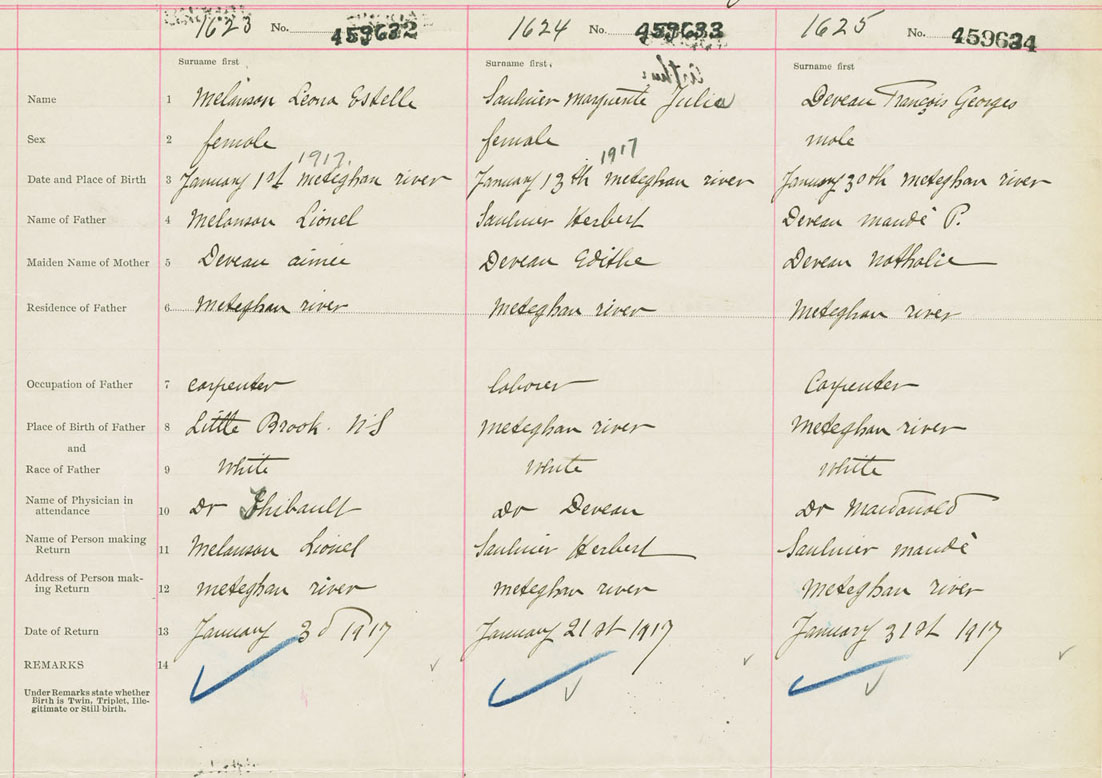 1623 No. 459632 1624 No. 459633 1625 No. 459634
Surname first Surname first Surname first
Name 1 Melanson Leona Estelle Saulnier Marguerite Julia Deveau François Georges
Sex 2 female female male
1917. 1917
Date and Place of Birth 3 January 1st Meteghan river January 13th Meteghan river January 30th Meteghan river
Name of Father 4 Melanson Lionel Saulnier Herbert Deveau mandé P.
Maiden Name of Mother 5 Deveau aimée Deveau Edithe Deveau Nathalie
Residence of Father 6 Meteghan river Meteghan river Meteghan river
Occupation of Father 7 carpenter laborer Carpenter
Place of Birth of Father 8 Little Brook. NS Meteghan river Meteghan river
and
Race of Father 9 White White White
Name of Physician in
attendance 10 Dr Thibault Dr Deveau Dr Macdonald
Name of Person making
Return 11 Melanson Lionel Saulnier Herbert Saulnier mandé
Address of Person mak-
ing Return 12 meteghan river meteghan river Meteghan river
Date of Return 13 January 3d 1917 January 21st 1917 January 31st 1917
REMARKS 14
Under Remarks state whether
Birth is Twin, Triplet, Ille-
gitimate or Still-birth.